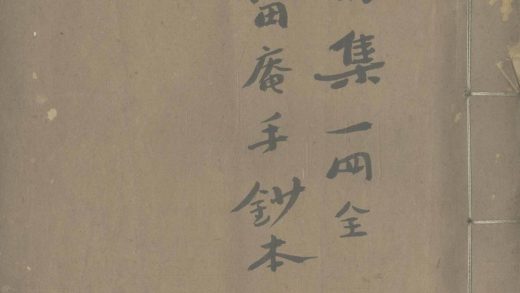 集一冊全
庵手鈔本